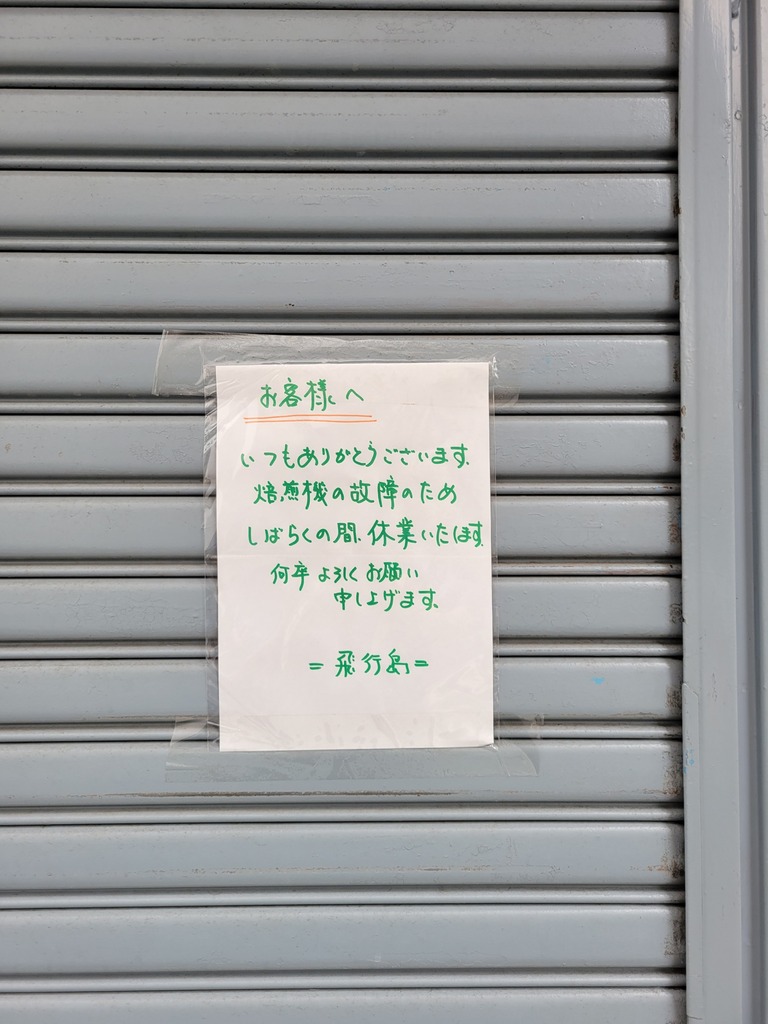 お客様へ
いつもありがとうございます.
焙煎機の故障のため
しばらくの間、休業いたします.
何卒よろしくお願い
申し上げます.
=飛行島=